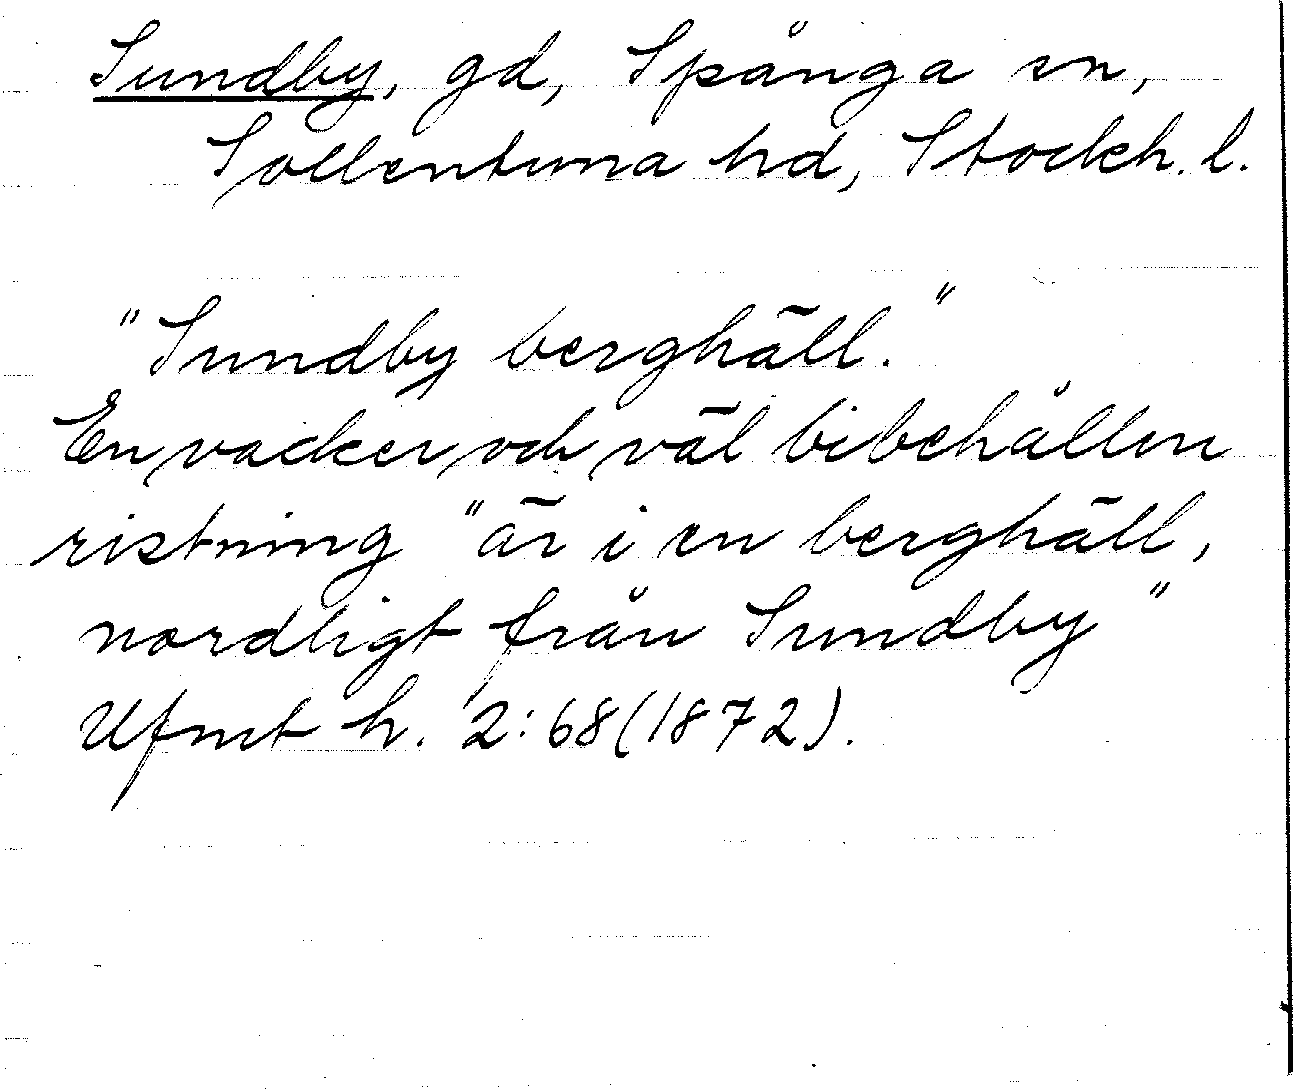 Sundby, gd, Spånga sn,
Sollentuna hd, Stockh. l.
"Sundby berghäll."
En vacker och väl bibehållen
ristning "är i en berghäll,
nordligt från Sundby"
Ufmt h. 2:68(1872).